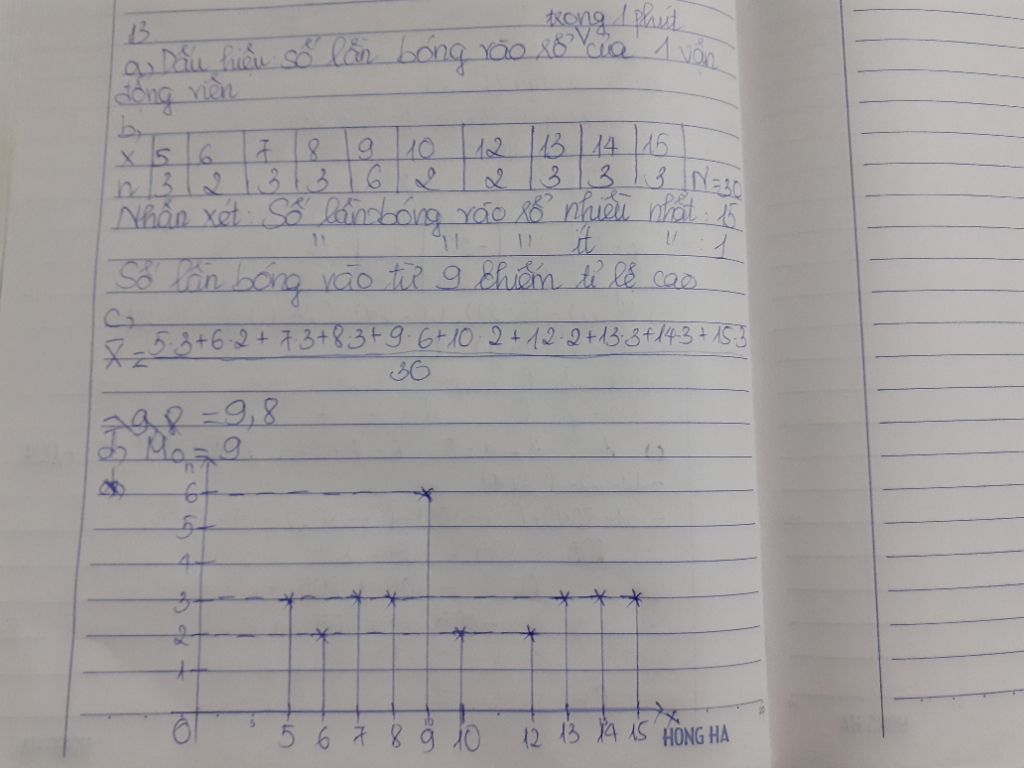 13
trong 1 phút
a, Dấu hiệu: Số lần bóng vào rổ của 1 vận
động viên
b,
x 5 6 7 8 9 10 12 13 14 15
n 3 2 3 3 6 2 2 3 3 3 N=30
Nhận xét: Số lần bóng vào rổ nhiều nhất: 15
" " " ít " : 1
Số lần bóng vào từ 9 chiếm tỉ lệ cao
c,
X̄ = 5.3+6.2+7.3+8.3+9.6+10.2+12.2+13.3+14.3+15.3
30
= 9,8 = 9,8
d, Mo = 9
n
6
5
4
3
2
1
0 5 6 7 8 9 10 12 13 14 15 x
HONG HA